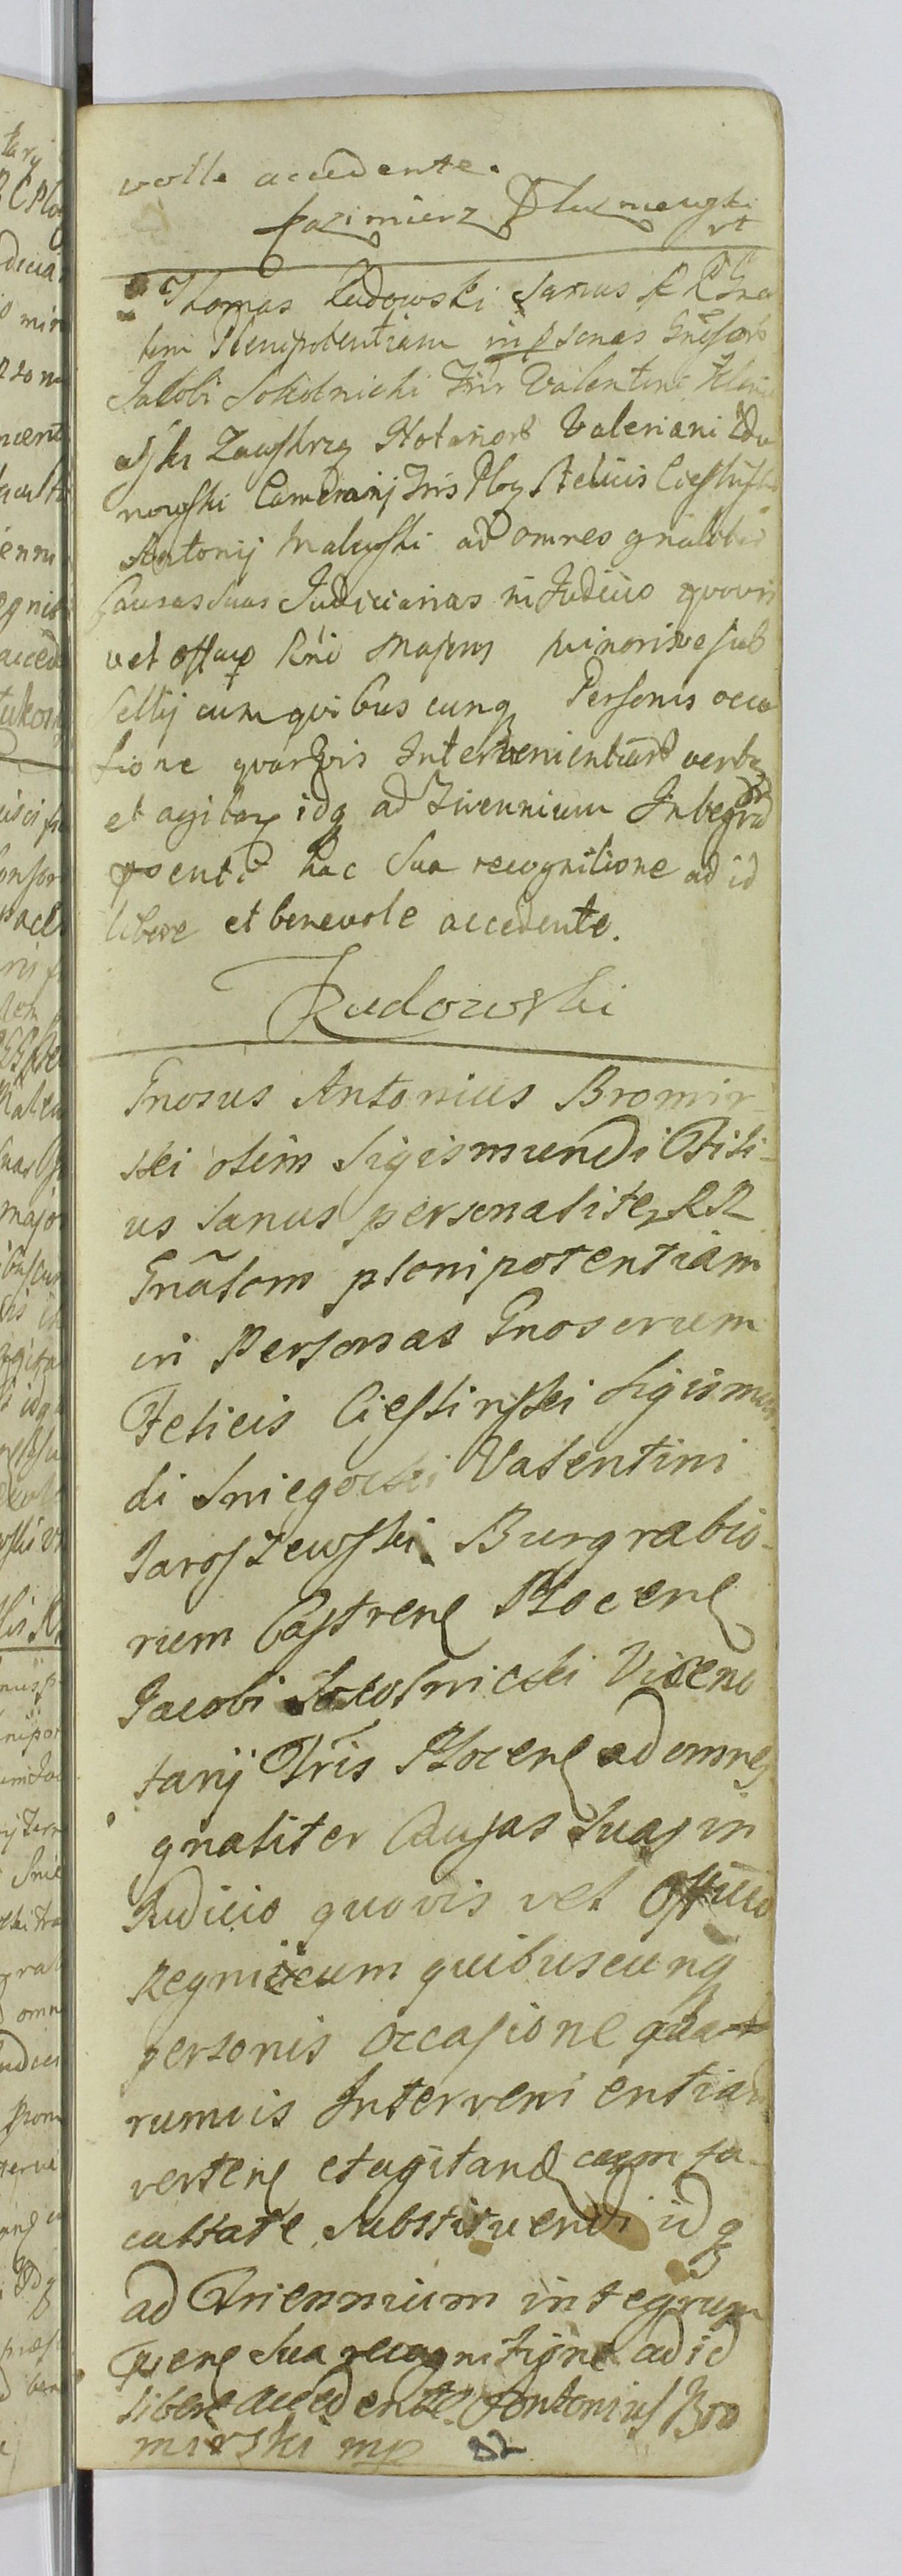 volle accedente.
Kazimierz
G Thomas Rudowski Sanus R R Gna
lem Plenipotentiam in psonas Gnesorb
Jacobi Sokolnicki Valentini
Zawskrzy Notariorb Valeriani Zdu
nowski Camerarij Tris Plog Felicis Ciestinski
Antonij Malewski ad omnes gnaliter
Causas Suas Judiciarias in Judicio quovis
vel Offacio Rni Majoris minorisve sub
sellij cum quibus cunq Personis occa
sione quarvis Intervenientiarb verten
et agitan idq ad Triennium Integrū
psenti hac Sua recognitione ad id
libere et benevole accedente.
Rudowski
Gnosus Antonius Bromir
ski olim Sigismundi Fili-
us Sanus personaliter RR
Gnãlom plenipotentiam
in Personas Gnoserum
Felicis Ciestinski Sigismun
di Sniegocki Valentini
Jaroszewski Burgrabio-
rum Castrene Plocene
Jacobi Sokolnicki Viceno
tarij Tris Plocene ad omnes
gnaliter Causas Suas in
Judicio quovis vel Officio
Regni cum quibuscunq
personis occasione qua
rumvis Intervenientiar
vertene et agitand cum fa-
cultate Substituendi idq
ad Triennium integrum
psene Sua recognitione ad id
libere accedente Antonius Bro
mirski mp